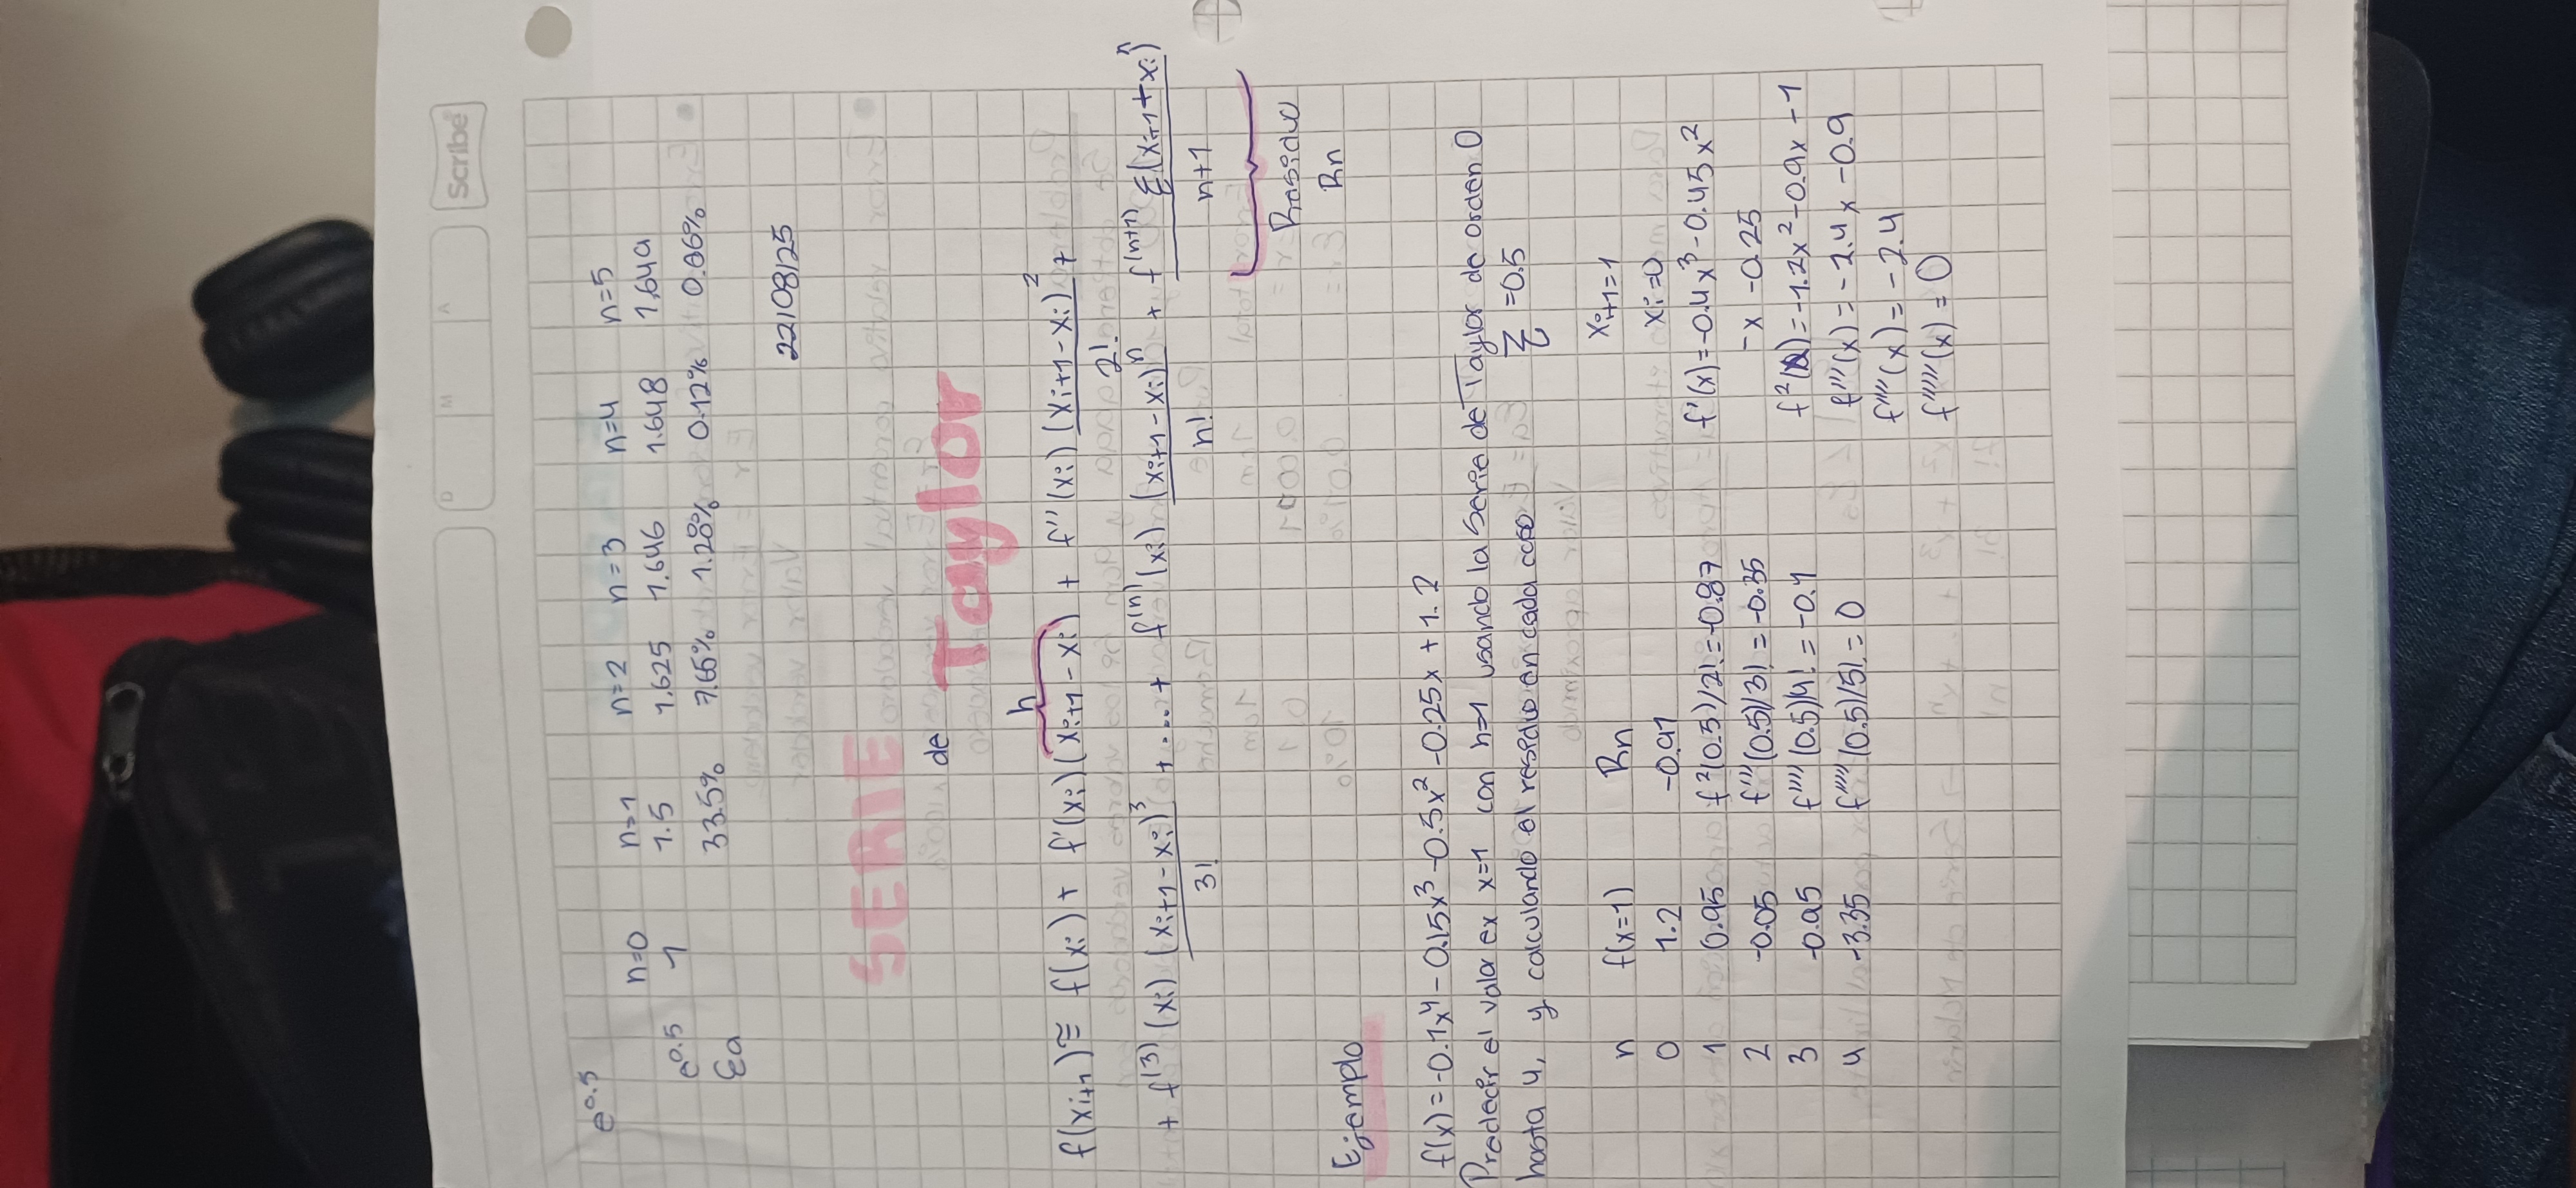 D M A Scribe
e^0.5
n=0 n=1 n=2 n=3 n=4 n=5
e^0.5 1 1.5 1.625 1.646 1.648 1,649
Ea 33.5% 7.65% 1.28% 0.12% 0.06%
22/08/25
SERIE
de Taylor
h
f(xi+1) ≅ f(xi) + f'(xi)(xi+1 - xi) + f''(xi) (xi+1 - xi)^2 / 2! +
+ f^(3) (xi) (xi+1 - xi)^3 / 3! + ... + f^(n) (xi) (xi+1 - xi)^n / n! + f^(n+1) ξ(xi+1 + xi)^n / n+1
Residuo
Rn
Ejemplo
f(x) = -0.1x^4 - 0.15x^3 - 0.5x^2 - 0.25x + 1.2
Predecir el valor ex x=1 con h=1 usando la serie de Taylor de orden 0
hasta 4, y calculando el residuo en cada caso ξ = 0.5
n f(x=1) Rn xi+1=1
0 1.2 -0.91 xi=0
1 0.95 f²(0.5)/2! = -0.87 f'(x) = -0.4x^3 - 0.45x^2
2 -0.05 f'''(0.5)/3! = -0.35 -x -0.25
3 -0.95 f''''(0.5)/4! = -0.1 f²(x) = -1.2x^2 - 0.9x - 1
4 -3.35 f'''''(0.5)/5! = 0 f'''(x) = -2.4x - 0.9
f''''(x) = -2.4
f'''''(x) = 0